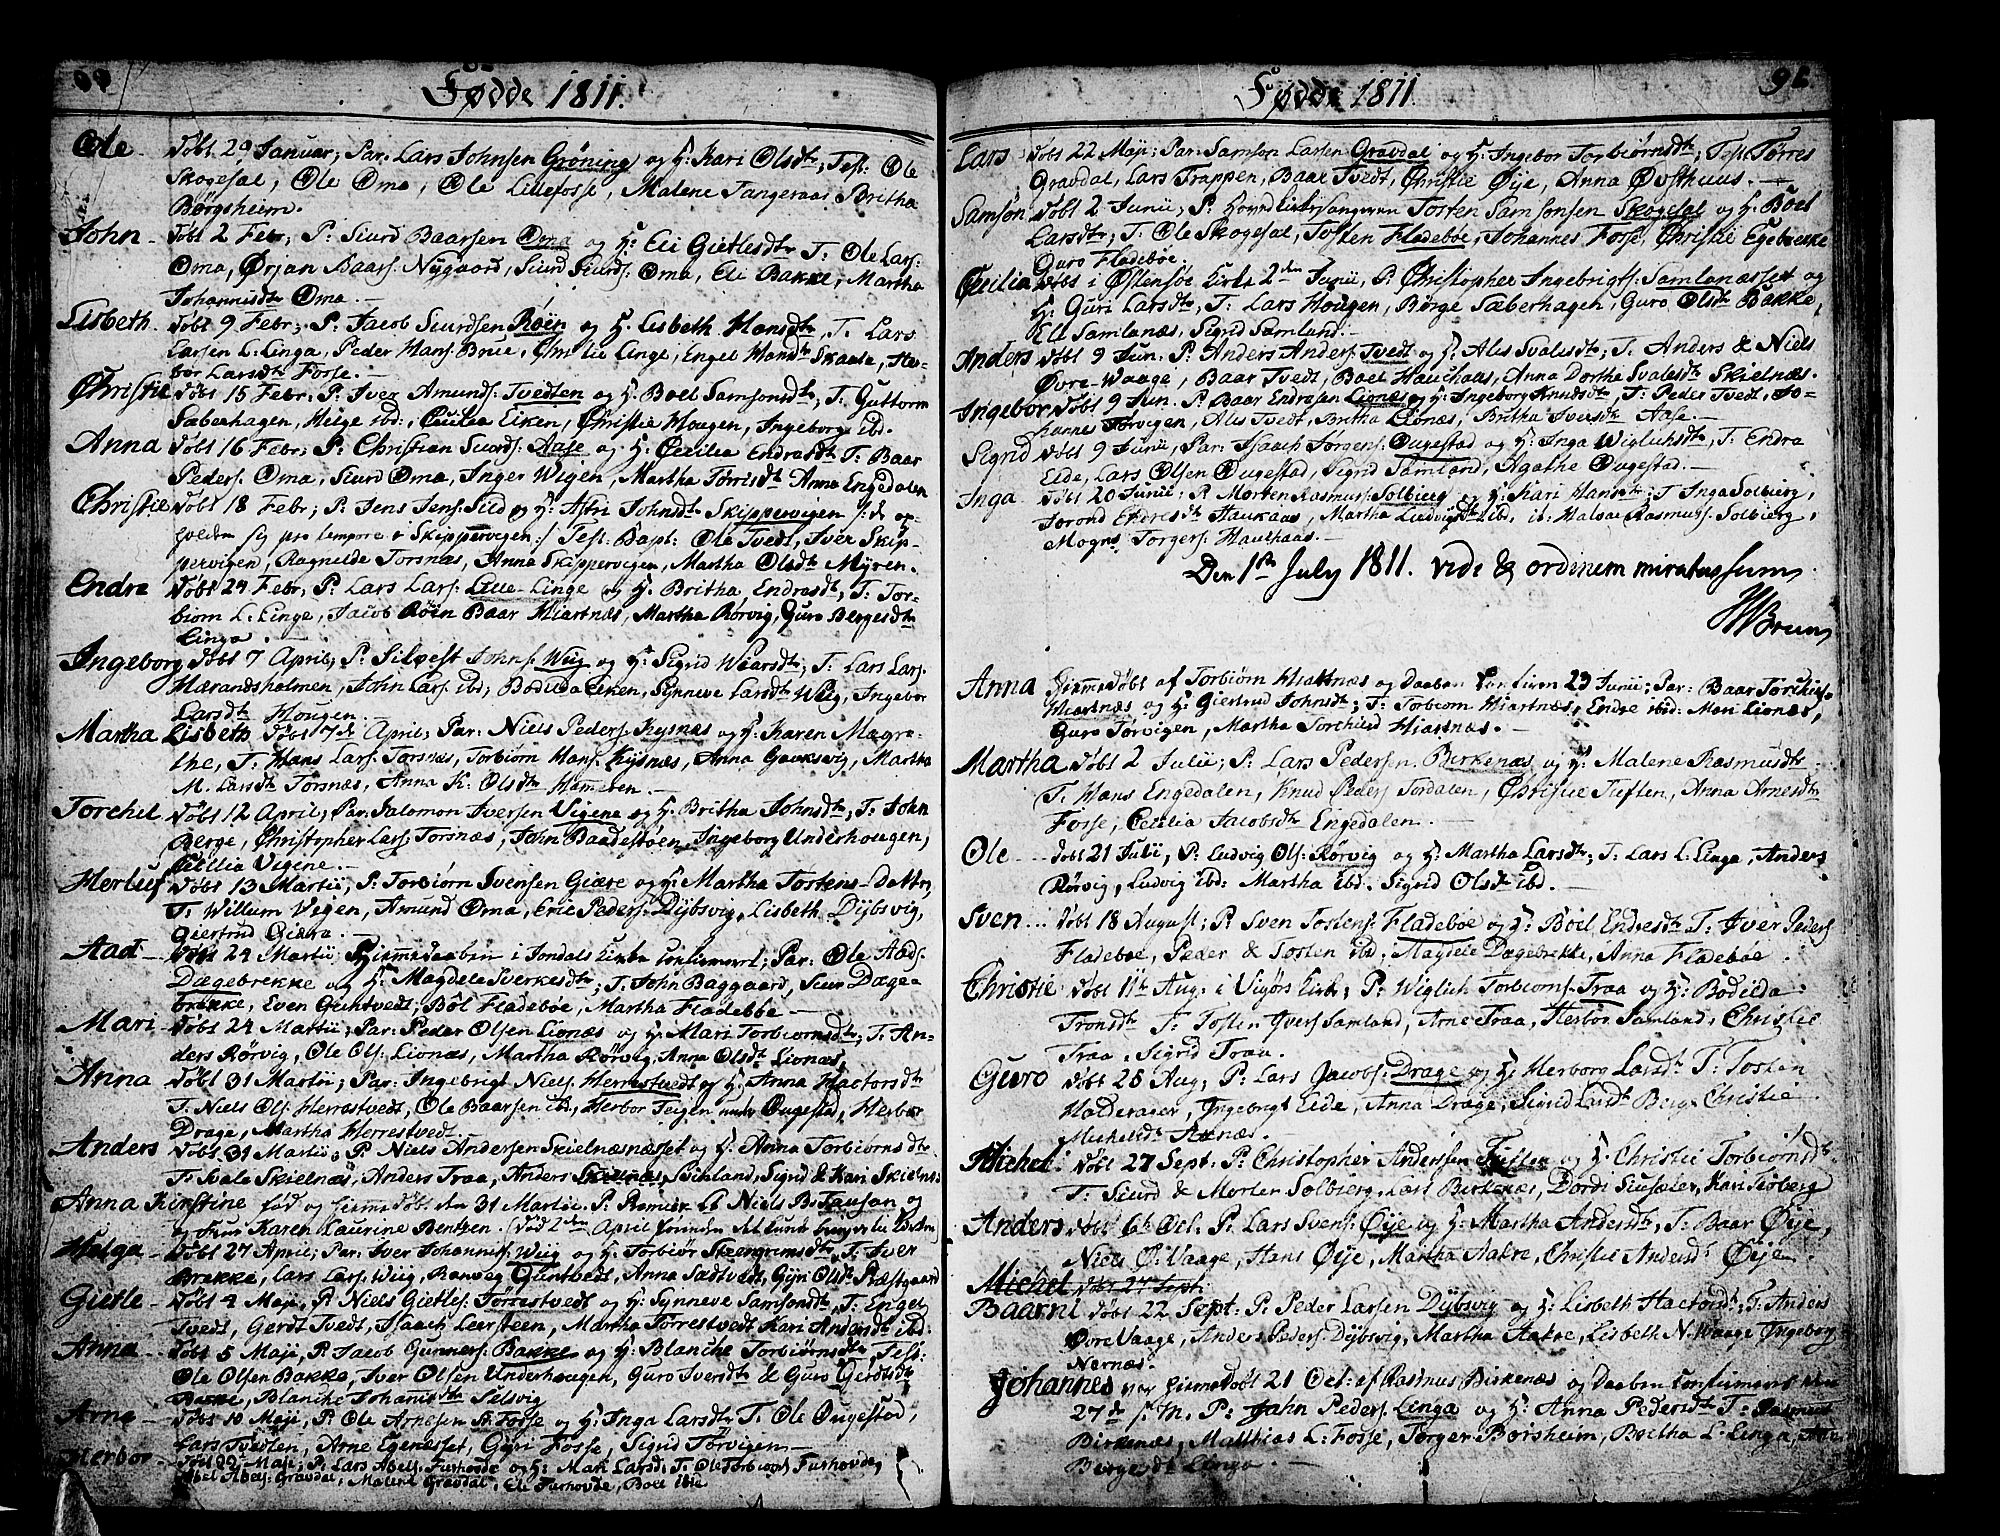 Fødde 1811.
Ole - Døbt 29 Januar; Par. Lars Johnsen Grøning og H: Kari Olsdtr; Test: Ole
Skogesal, Ole Oma, Ole Lillefosse, Malene Tangeraas Britha
Børgsheim.
John - Døbt 2 Febr; P: Siurd Baarsen Oma og H: Eli Gietlesdtr T: Ole Lars:
Oma, Ørjan Baars: Nygaard, Siurd Siurds: Oma, Eli Bakke, Martha
Johannisdtr Oma.
Lisbeth. Døbt 9 Febr; P: Jacob Siurdsen Røen og H. Lisbeth Hansdtr, T: Lars
Larsen L. Linga, Peder Hans: Brue, Christie Linge, Engel Hansdtr Skaale, Her-
bor Larsdtr Fosse.
Christie Døbt 15 Febr; P. Iver Amunds: Tvedten og H. Boel Samsonsdtr; T. Guttorm
Sæberhagen, Helge ibd: Cecilia Eiken, Christie Hougen, Ingeborg ibd.
Anna Døbt 16 Febr; P: Christian Siurds: Aase og H. Cecilia Endresdtr T: Baar
Peders: Oma, Siurd Oma, Inger Wigen, Martha Tørrisdtr Anna Engedalen
Christie Døbt 18 Febr; P: Jens Jens: Sild og H: Astri Johnsdtr Skippervigen /: de op-
holden sig pro tempore i Skippervigen:/ Test: Bapt: Ole Tvedt, Iver Skip-
pervigen, Ragnilde Torsnæs, Anna Skippervigen, Martha Olsdtr Myren.
Endre Døbt 24 Febr, P: Lars Lars: Lille-Linge og H. Britha Endresdtr, T: Tor-
biørn L. Linge, Jacob Røen Baar Hiartnæs, Martha Rørvig, Guro Børgesdtr
Linga.
Ingeborg Døbt 7 April; P: Silvest Johns: Wiig og H: Sigrid Waarsdtr; T: Lars Lars:
Mærandsholmen, John Lars: ibd; Bodilda Eiken, Synneve Larsdtr Wiig, Ingebor
Larsdtr Hougen.
Martha Lisbeth Døbt 7de April; Par: Niels Peders: Kysnæs og H: Karen Magre-
the, T: Hans Lars: Torsnæs, Torbiørn Hans: Kysnæs, Anna Gauksvig, Martha
M. Larsdtr Torsnæs, Anna K: Olsdtr Hammeren.
Torchel Døbt 12 April; Par. Salomon Iversen Vigene og H: Britha Johnsdtr; T: John
Berge, Christopher Lars: Torsnæs, John Baadestøen, Ingeborg Underhougen,
Cecilia Vigene.
Herluf Døbt 13 Martii; P: Torbiørn Svensen Giære og H: Martha Tostens-Datter,
T. Willum Vigen, Amund Oma, Eric Peders: Dybsvig, Lisbeth Dybsvig,
Giertrud Giæra.
Aad - Døbt 24 Martii; Hiemmedaaben i Jondals Kirke confirmeret; Par: Ole Aads:
Dægebrekke og H: Magdele Sverkesdtr; T. John Baggaard, Siur Dæge-
brekke, Even Guntvedt, Böl Fladebøe, Martha Fladebøe
Mari Døbt 24 Martii; Par: Peder Olsen Lionæs og H: Mari Torbiørnsdtr; T: An-
ders Rørvig, Ole Ols: Lionæs, Martha Rørvig, Anna Olsdtr Lionæs,
Anna Døbt 31 Martii; Par: Ingebrigt Niels: Herrestvedt og H: Anna Hactorsdtr
T: Niels Ols: Herrestvedt, Ole Baarsen ibd, Herbor Teigen under Ougestad, Herbor
Drage, Martha Herrestvedt.
Anders Døbt 31 Martii; P Niels Andersen Skielnæsnæsset og H: Anna Torbiørnsdtr
T: Svale Skielnæs, Anders Traa, Anders Skielnæs, Sigrid & Kari Skielnæs
Anna Kirstine fød og hiemmedøbt den 31 Martii. P. Premier Lt Niels B: Tauson og
Frue Karen Laurine Bentzen.
Helga Døbt 27 April; Par: Iver Johannis: Wiig og H: Torbiør Steengrimsdtr, T: Iver
Brekke, Lars Lars: Wiig, Ranveg Guntvedt, Anna Sædtvedt, Gyri Olsdtr Præstgaard
Gietle - Døbt 4 Maji, P: Niels Gietles: Tørrestvedt og H: Synneve Samsonsdtr, T: Engel
Tvedt, Gerdt Tvedt, Isaach Leersteen, Martha Torrestvedt Kari Andersdtr ibd.
Anna Døbt 5 Maji, P. Jacob Gunners: Bakke og H: Blanche Torbiørnsdtr, Test:
Ole Olsen Bakke, Iver Olsen Underhougen, Guro Iversdtr & Guro Gerdtsdtr
Bakke, Blanche Johannisdtr Selsvig
Arne - Døbt 10 Maji, P. Ole Arnesen St. Fosse og H: Inga Larsdtr T: Ole Ougestad,
Lars Tvedten, Arne Egenæsset, Gyri Fosse, Sigrid Tørvigen
Herbor - Døbt 22 Maji; P: Lars Abels: Furhovde og H: Mari Larsd; T: Ole Torbiørns Furhovde,
Abel Abels: Gravdal, Malene Gravdal, Eli Furhovde, Boel ibid
Fødde 1811.
Lars Døbt 22 Maji; Par: Samson Larsen Gravdal og H: Ingebor Torbiørnsdtr; Test: Tørres
Gravdal, Lars Trappen, Baar Tvedt, Christie Øye, Anna Øvsthuus.
Samson Døbt 2 Junii; P: hovedkirkesangeren Tosten Samsonsen Skogesal og H: Boel
Larsdtr; T: Ole Skogesal, Tosten Fladebøe, Johannes Fosse, Christie Egebrekke
Guro Fladebøe.
Cecilia Døbt i Østensøe Kirke 2den Junii, P: Christopher Ingebrigts: Samlanæsset og
H: Guri Larsdtr, T: Lars Hougen, Børge Sæberhagen, Guro Olsdtr Bakke,
Eli Samlanæs, Sigrid Samland.
Anders Døbt 9 Jun. P: Anders Anders: Tvedt og H: Ales Svalesdtr; T: Anders & Niels
Øvre-Waage, Baar Tvedt, Boel Hauchaas, Anna Dorthe Svalesdtr Skielnæs.
Ingebor Døbt 9 Jun. P: Baar Endresen Lionæs og H: Ingeborg Knudsdtr, T: Peder Tvedt, Jo-
hannes Tørvigen, Ales Tvedt, Britha Lionæs, Britha Iversdtr Aase.
Sigrid Døbt 9 Junii, Par: Isaach Jørgens: Ougestad og H: Inga Wiglichsdtr, T: Endra
Eide, Lars Olsen Ougestad, Sigrid Samland, Agathe Ougestad.
Inga - Døbt 20 Junii; P: Morten Rasmus: Solbierg og H: Kari Hansdtr; T: Inga Solbierg,
Torond Endresdtr Haukaas, Martha Ludvigsdtr ibd, Halvor Rasmus: Solbierg,
Mogns Torgers: Haukaas.
Den 1ste July 1811. vidi & ordinem miratus sum
Bruun
Anna Hiemmedøbt af Torbiørn Hiartnæs og Daaben confirm 23 Junii; Par: Baar Torchils:
Hiartnæs og H: Giertrud Johnsdtr; T: Torbiørn Hiartnæs, Endre ibid: Mari Lionæs,
Guro Tørvigen, Martha Torchilsd Hiartnæs.
Martha Døbt 2 Julii; P: Lars Pedersen Birkenæs og H: Malene Rasmusdtr
T: Hans Engedalen, Knud Peders: Tordalen, Christie Tuften, Anna Arnesdtr
Fosse, Cecilia Jacobsdtr Engedalen.
Ole - Døbt 21 Julii, P: Ludvig Ols: Rørvig og H: Martha Larsdtr; T: Lars L. Linga, Anders
Rørvig, Ludvig ibd: Martha ibd. Sigrid Olsdtr ibd.
Sven ... Døbt 18 August; P. Sven Tostens: Fladebøe og H: Böel Endresdtr T: Iver Peders:
Fladebøe, Peder & Tosten ibd; Magdele Dægebrekke, Anna Fladebøe
Christie Døbt 11te Aug: i Vigørs Kirke; P: Wiglich Torbiorns: Traa og H: Bodilda
Tronsdtr T: Tosten Ivers: Samland, Arne Traa, Herbor Samland, Christie
Traa, Sigrid Traa.
Guro Døbt 25 Aug; P: Lars Jacobs: Drage og H: Herborg Larsdtr T: Tosten
Halderager, Ingebrigt Eide, Anna Drage, Sigrid Larsdtr Berge Christie
Michelsdtr Axnæs.
Michel: Døbt 27 Sept: P: Christopher Anderssen Tuften og H. Christie Torbiørnsdtr
T: Siurd & Morten Solbierg, Lars Birkenæs, Dordi Siusæter, Kari Solberg
Anders Døbt 6te Oct. P: Lars Svens: Øye og H: Martha Andersdtr, T: Baar Øye,
Niels Ø: Vaage, Hans Øye, Martha Aakre, Christie Andersdtr Øye
Michel Døbt 27de Sept:
Baarni Døbt 22 Sept: P: Peder Larsen Dybsvig og H: Lisbeth Hactorsdtr; T: Anders
Øvre Vaage, Anders Peders: Dybsvig, Martha Aakre, Lisbeth N. Waage Ingeborg
Nernæs.
Johannes var hiemmedøbt 21 Oct: af Rasmus Birkenæs og Daaben confirmeret den
27de s: M. P: John Peders: Linga og H: Anna Pedersdtr T: Rasmus
Birkenæs, Matthias L: Fosse, Torger Borsheim, Britha L. Linga,
Børgesdtr Linga.